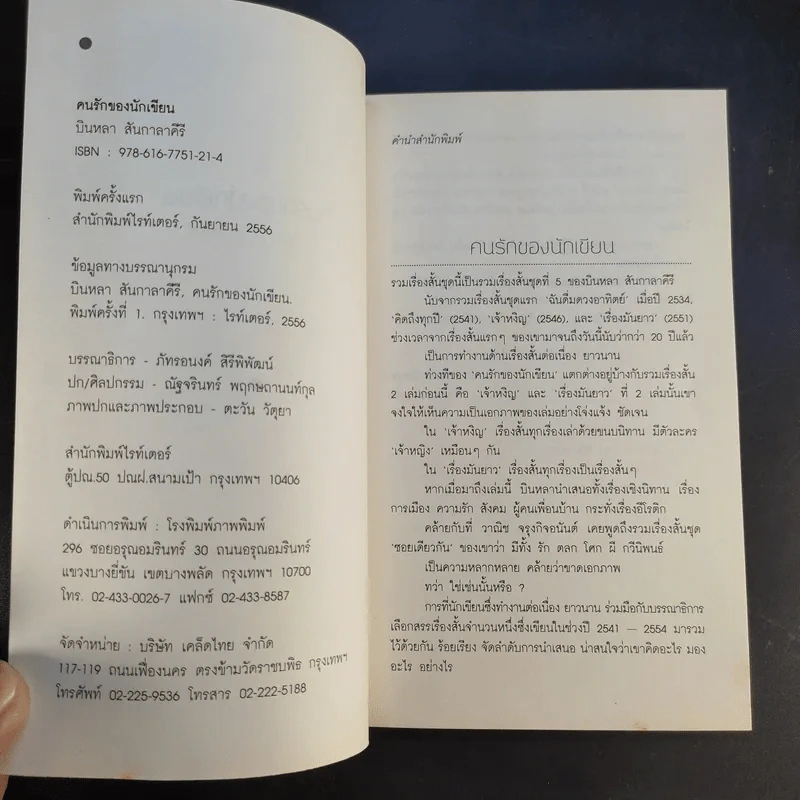 คนรักของนักเขียน
บินหลา สันกาลาคีรี
ISBN : 978-616-7751-21-4
พิมพ์ครั้งแรก
สำนักพิมพ์ไรท์เตอร์, กันยายน 2556
ข้อมูลทางบรรณานุกรม
บินหลา สันกาลาคีรี, คนรักของนักเขียน.
พิมพ์ครั้งที่ 1. กรุงเทพฯ : ไรท์เตอร์, 2556
บรรณาธิการ - ภัทรอนงค์ สิรีพิพัฒน์
ปก/ศิลปกรรม - ณัฐจรินทร์ พฤกษถานนท์กุล
ภาพปกและภาพประกอบ - ตะวัน วัตุยา
สำนักพิมพ์ไรท์เตอร์
ตู้ปณ.50 ปณฝ.สนามเป้า กรุงเทพฯ 10406
ดำเนินการพิมพ์ : โรงพิมพ์ภาพพิมพ์
296 ซอยอรุณอมรินทร์ 30 ถนนอรุณอมรินทร์
แขวงบางยี่ขัน เขตบางพลัด กรุงเทพฯ 10700
โทร. 02-433-0026-7 แฟกซ์ 02-433-8587
จัดจำหน่าย : บริษัท เคล็ดไทย จำกัด
117-119 ถนนเฟื่องนคร ตรงข้ามวัดราชบพิธ กรุงเทพฯ
โทรศัพท์ 02-225-9536 โทรสาร 02-222-5188
คำนำสำนักพิมพ์
คนรักของนักเขียน
รวมเรื่องสั้นชุดนี้เป็นรวมเรื่องสั้นชุดที่ 5 ของบินหลา สันกาลาคีรี
นับจากรวมเรื่องสั้นชุดแรก 'ฉันดื่มดวงอาทิตย์' เมื่อปี 2534,
'คิดถึงทุกปี' (2541), 'เจ้าหงิญ' (2546), และ 'เรื่องมันยาว' (2551)
ช่วงเวลาจากเรื่องสั้นแรกๆ ของเขามาจนถึงวันนี้นับว่ากว่า 20 ปีแล้ว
เป็นการทำงานด้านเรื่องสั้นต่อเนื่อง ยาวนาน
ท่วงทีของ 'คนรักของนักเขียน' แตกต่างอยู่บ้างกับรวมเรื่องสั้น
2 เล่มก่อนนี้ คือ 'เจ้าหงิญ' และ 'เรื่องมันยาว' ที่ 2 เล่มนั้นเขา
จงใจให้เห็นความเป็นเอกภาพของเล่มอย่างโจ่งแจ้ง ชัดเจน
ใน 'เจ้าหงิญ' เรื่องสั้นทุกเรื่องเล่าด้วยขนบนิทาน มีตัวละคร
'เจ้าหญิง' เหมือนๆ กัน
ใน 'เรื่องมันยาว' เรื่องสั้นทุกเรื่องเป็นเรื่องสั้นๆ
หากเมื่อมาถึงเล่มนี้ บินหลานำเสนอทั้งเรื่องเชิงนิทาน เรื่อง
การเมือง ความรัก สังคม ผู้คนเพื่อนบ้าน กระทั่งเรื่องอีโรติก
คล้ายกับที่ วาณิช จรุงกิจอนันต์ เคยพูดถึงรวมเรื่องสั้นชุด
'ซอยเดียวกัน' ของเขาว่า มีทั้ง รัก ตลก โศก ผี กวีนิพนธ์
เป็นความหลากหลาย คล้ายว่าขาดเอกภาพ
ทว่า ใช่เช่นนั้นหรือ ?
การที่นักเขียนซึ่งทำงานต่อเนื่อง ยาวนาน ร่วมมือกับบรรณาธิการ
เลือกสรรเรื่องสั้นจำนวนหนึ่งซึ่งเขียนในช่วงปี 2541 — 2554 มารวม
ไว้ด้วยกัน ร้อยเรียง จัดลำดับการนำเสนอ น่าสนใจว่าเขาคิดอะไร มอง
อะไร อย่างไร